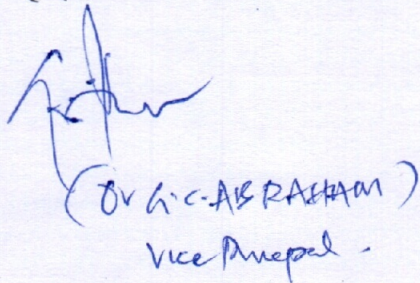 (Dr G.C. ABRAHAM)
Vice Principal.